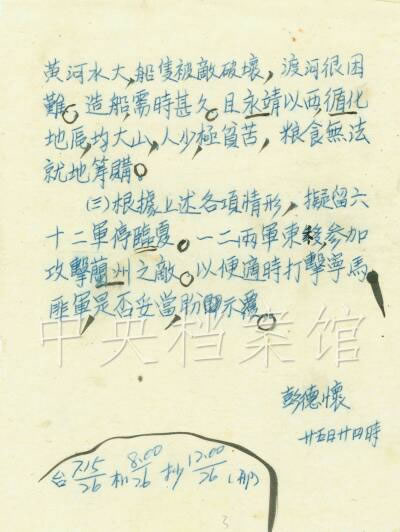 黃河水大，船隻被敵破壞，渡河很困
難。造船需時甚久。且永靖以西循化
地區均大山，人少，極貧苦，粮食無法
就地籌購。
㈢根據上述各項情形，擬留六
十二軍停臨夏。一二兩軍東移參加
攻擊蘭州之敵。以便適時打擊寧馬
匪軍，是否妥當，盼即示覆。
中央档案馆
彭德懷
廿五日廿四時
台 7.15/26 和 8.00/26 抄 12.00/26
3